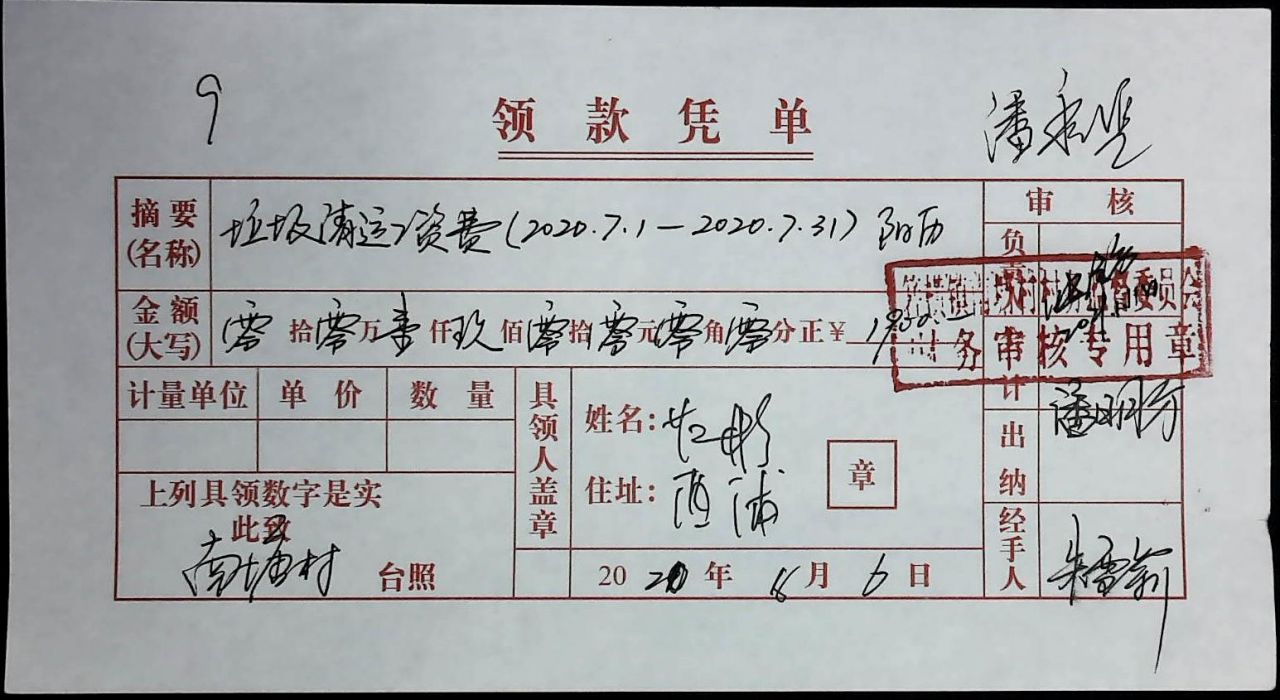 9
领款凭单
潘
摘要(名称) 垃圾清运工资费(2020.7.1—2020.7.31)阳历
审核
金额(大写) 零拾零万壹仟玖佰零拾零元零角零分正¥
负
务审核专用章
计量单位 单价 数量
具领人盖章
姓名:
计
潘明芳
住址:
章
出纳
上列具领数字是实
此致
南塘村 台照
2020年8月6日
经手人
朱雪